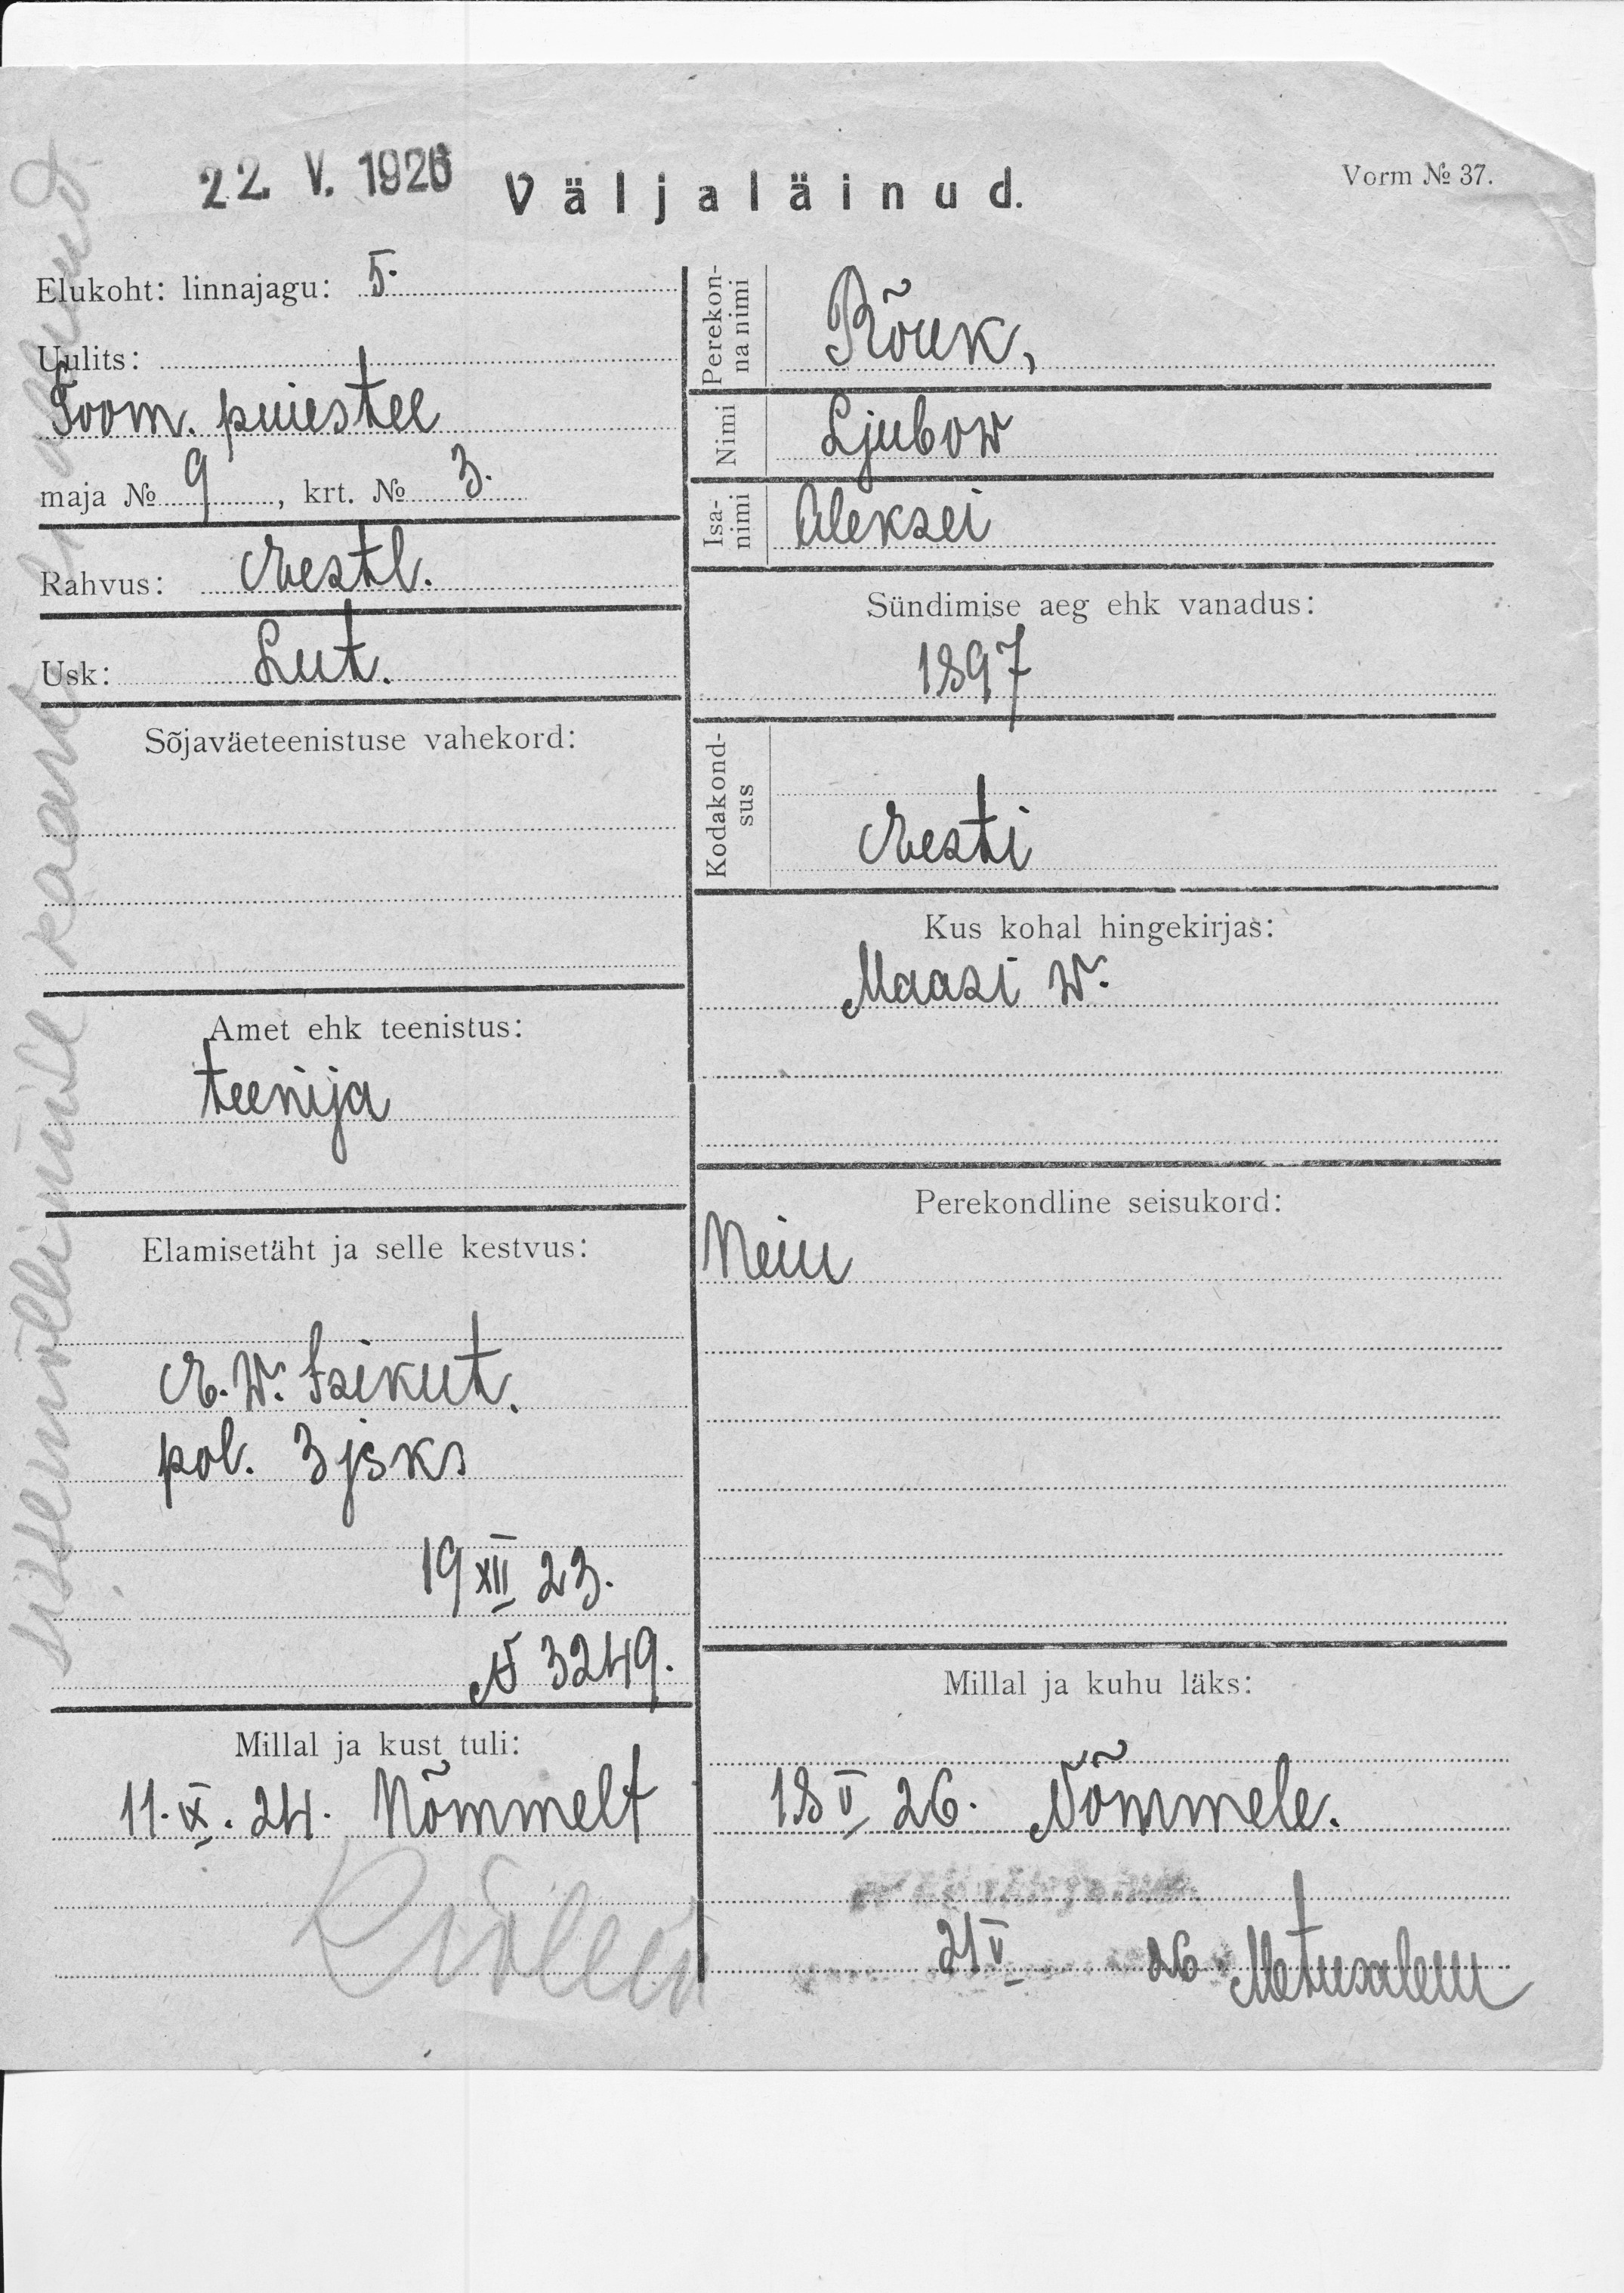 22. V. 1926 Väljaläinud.
Vorm № 37.
Elukoht: linnajagu: 5.
Uulits:
Toom. puiestee
maja № 9, krt. № 3.
Rahvus: Eestl.
Usk: Lut.
Sõjaväeteenistuse vahekord:
Amet ehk teenistus:
teenija
Elamisetäht ja selle kestvus:
E. W. Isikut.
pol. 3 jsks
19 XII 23.
№ 3249.
Millal ja kust tuli:
11. IX. 24. Nõmmelt
Perekonna nimi
Rõuk,
Nimi
Ljubow
Isanimi
Aleksei
Sündimise aeg ehk vanadus:
1897
Kodakondsus
Eesti
Kus kohal hingekirjas:
Maasi w.
Perekondline seisukord:
Neiu
Millal ja kuhu läks:
18 V 26. Nõmmele.
21 V 26 Metusalem